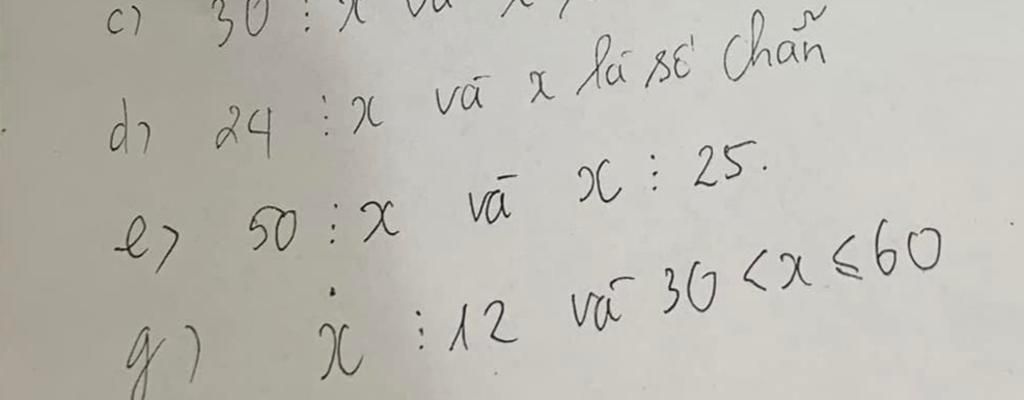 c) 30 ⋮ x và x
d) 24 ⋮ x và x là số chẵn
e) 50 ⋮ x và x ⋮ 25.
g) x ⋮ 12 và 30 < x ≤ 60